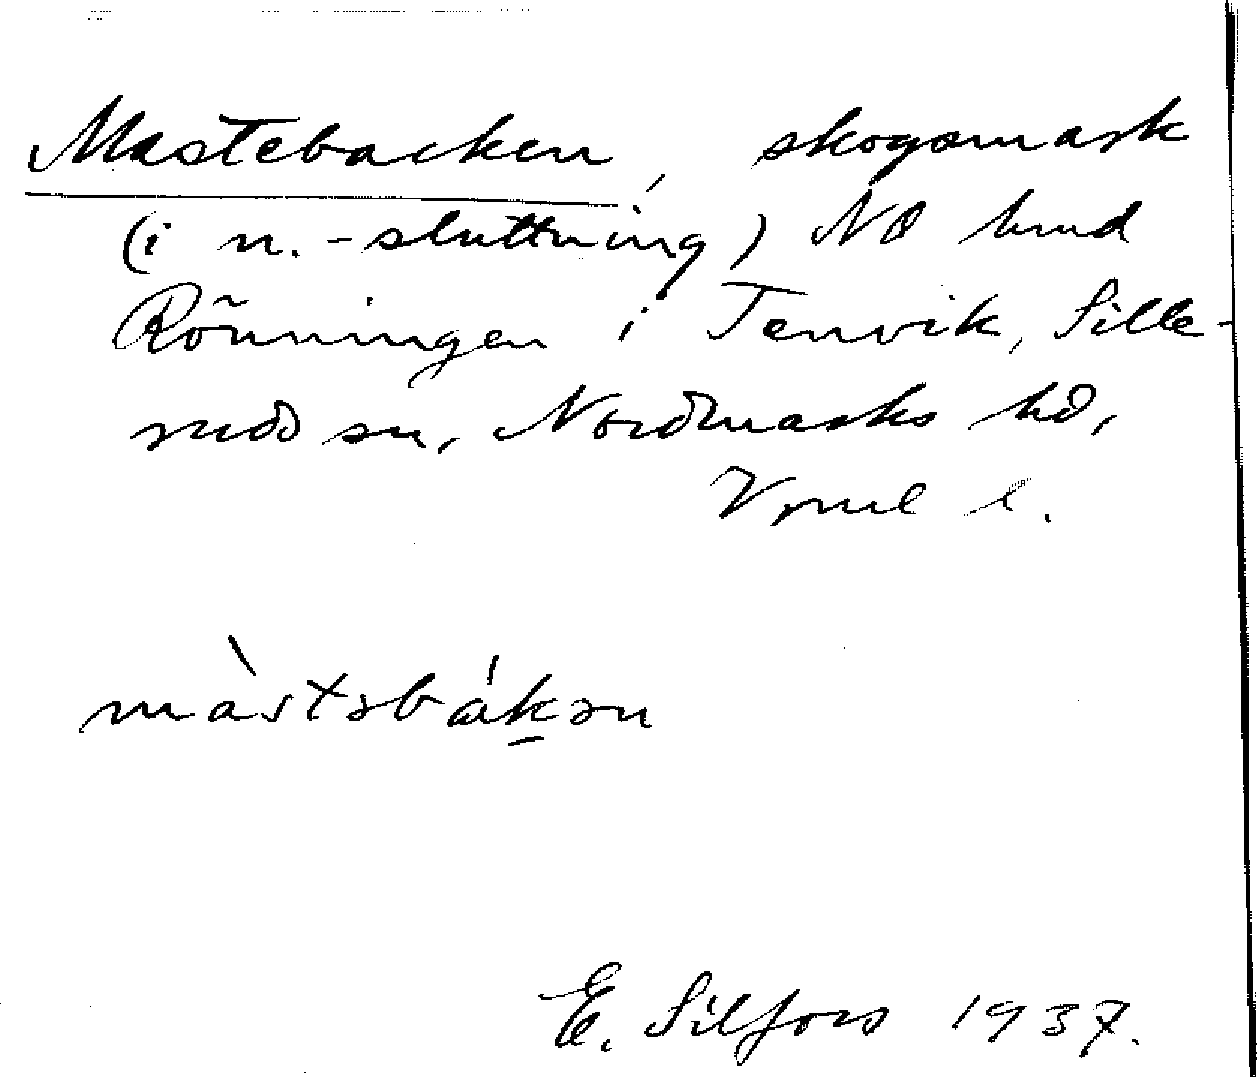 Mastebacken, skogsmark
(i n.-sluttning) NO hmd
Rönningen i Tenvik, Sille-
rudd sn, Nordmarks hd,
Vrml l.
màstəbákən
E. Silfors 1937.